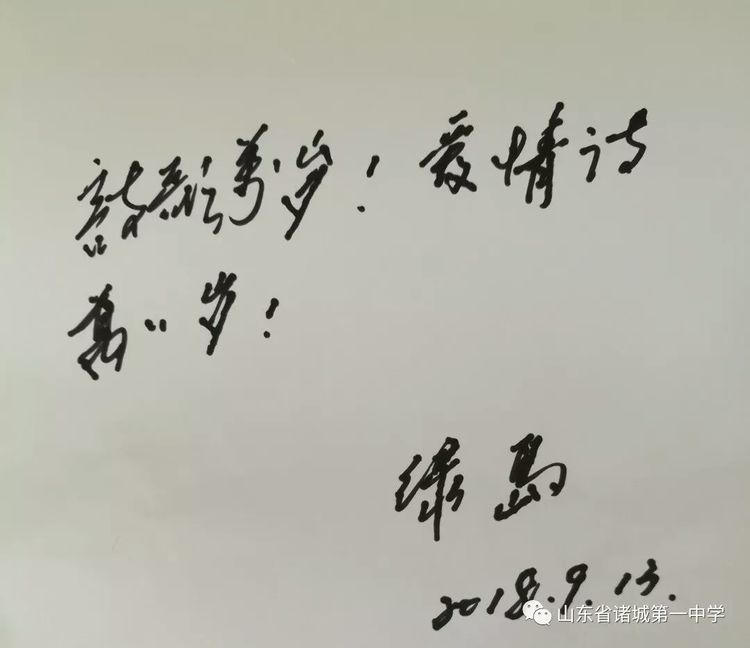 詩歌萬岁！爱情诗
萬〃岁！
绿岛
2018.9.13.
山东省诸城第一中学